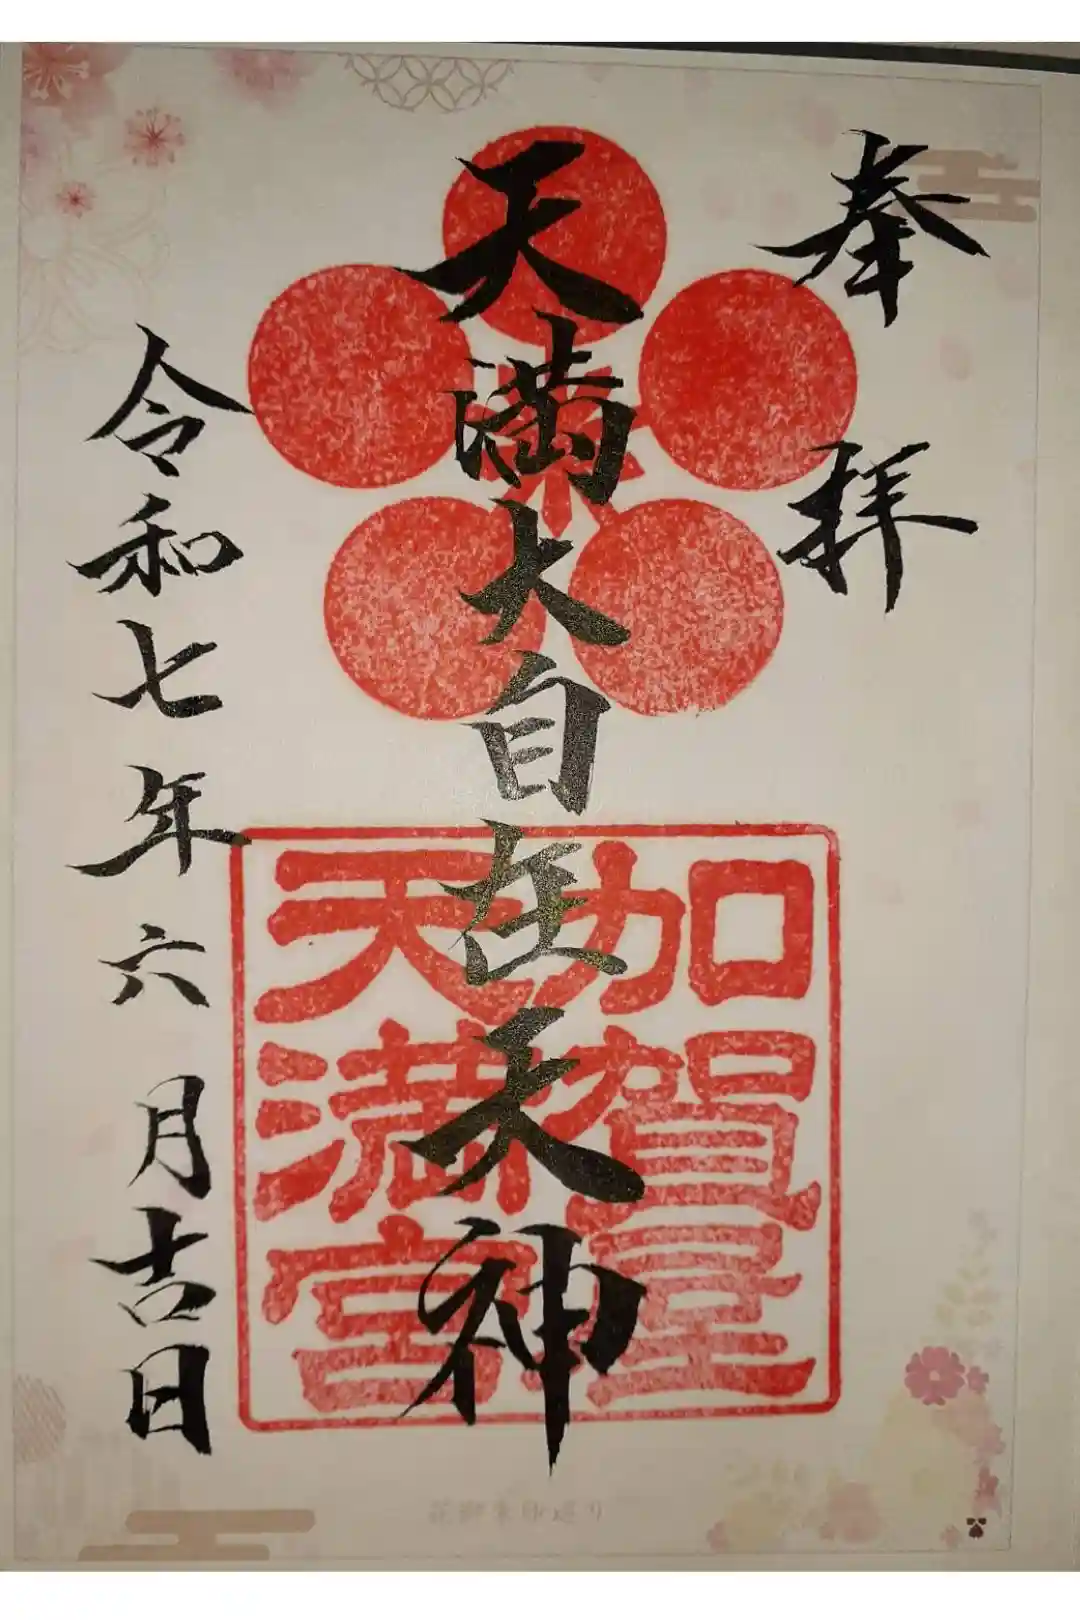 奉拝
天満大自在天神
加賀星
天満宮
令和七年六月吉日